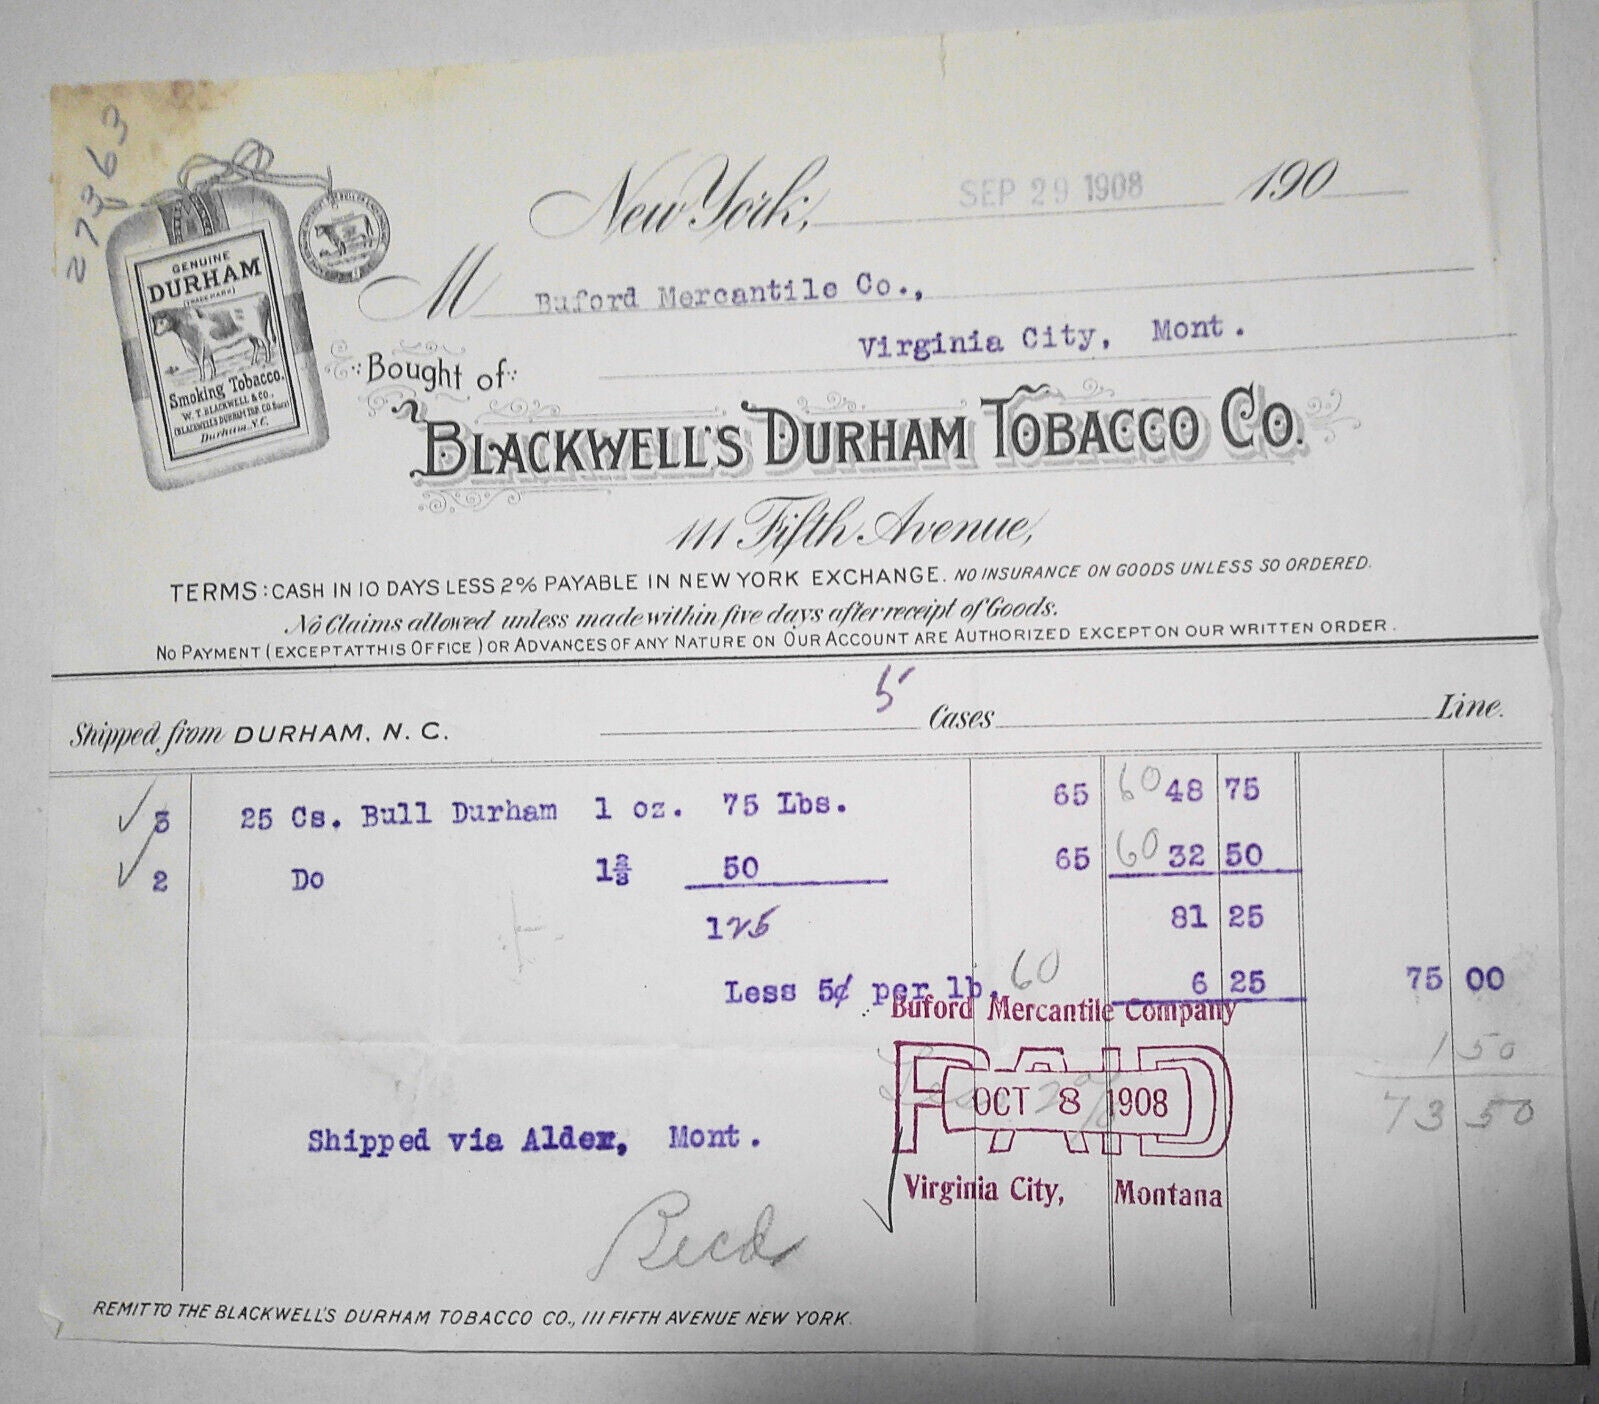 27363
GENUINE
DURHAM
(TRADE MARK)
Smoking Tobacco.
W. T. BLACKWELL & CO.
(BLACKWELL'S DURHAM TOB. CO. Succr)
Durham, N.C.
New York, SEP 29 1908 190
M Buford Mercantile Co.,
Virginia City, Mont.
Bought of
BLACKWELL'S DURHAM TOBACCO CO.
111 Fifth Avenue,
TERMS: CASH IN 10 DAYS LESS 2% PAYABLE IN NEW YORK EXCHANGE. NO INSURANCE ON GOODS UNLESS SO ORDERED.
No Claims allowed unless made within five days after receipt of Goods.
NO PAYMENT (EXCEPT AT THIS OFFICE) OR ADVANCES OF ANY NATURE ON OUR ACCOUNT ARE AUTHORIZED EXCEPT ON OUR WRITTEN ORDER.
Shipped from DURHAM, N. C. 5 Cases Line.
3 25 Cs. Bull Durham 1 oz. 75 Lbs. 65 60 48 75
2 Do 1⅔ 50 65 60 32 50
125 81 25
Less 5¢ per lb. 60 6 25 75 00
Buford Mercantile Company
1 50
Less 2%
PAID
OCT 8 1908
73 50
Shipped via Alder, Mont.
Virginia City, Montana
Recd
REMIT TO THE BLACKWELL'S DURHAM TOBACCO CO., 111 FIFTH AVENUE NEW YORK.